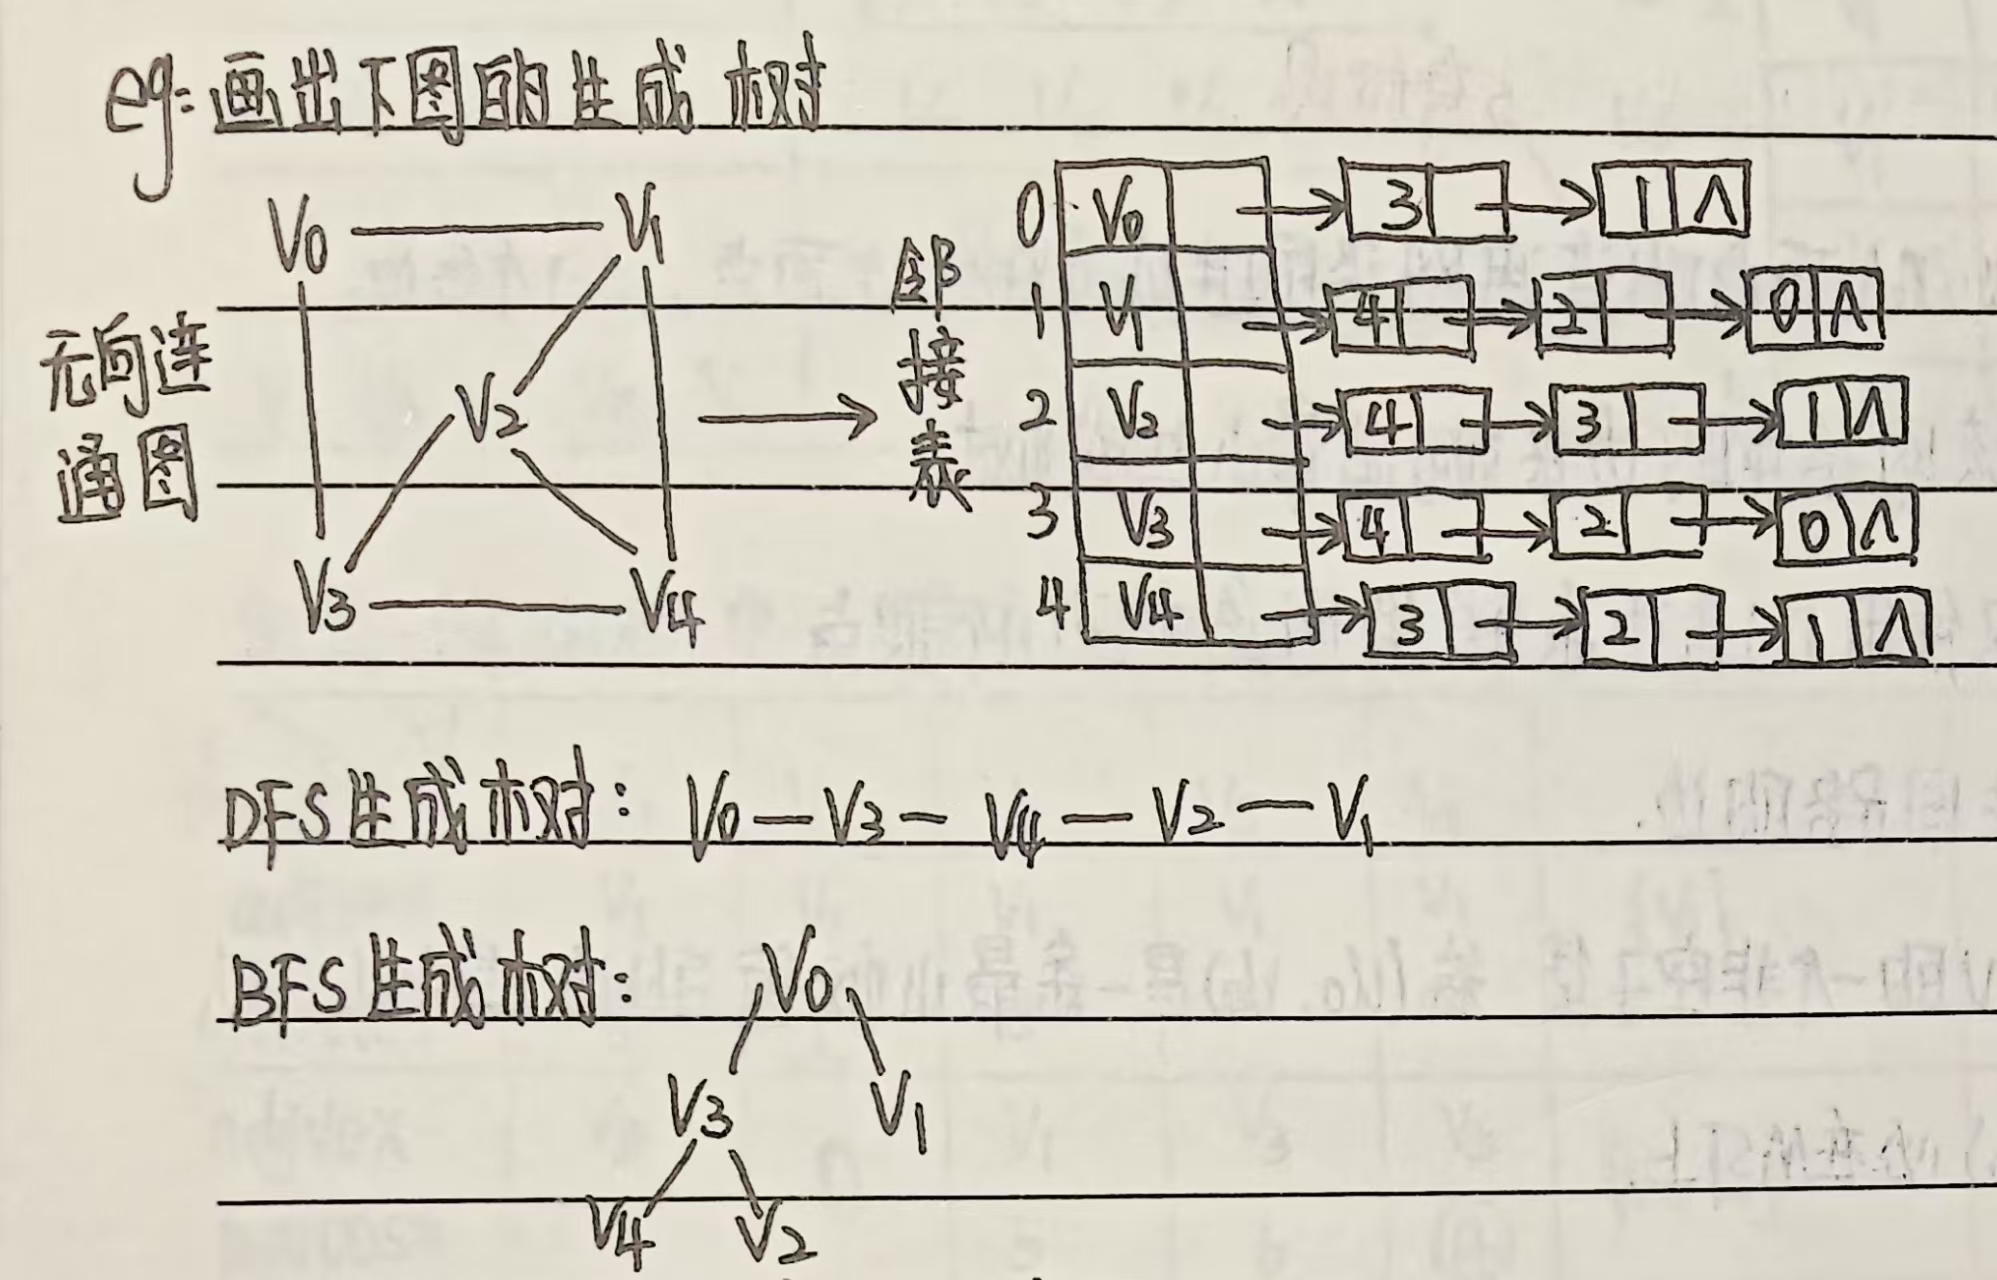 eg: 画出下图的生成树
无向连通图
V0 V1
V2
V3 V4
邻接表
0 V0 3 1 ∧
1 V1 4 2 0 ∧
2 V2 4 3 1 ∧
3 V3 4 2 0 ∧
4 V4 3 2 1 ∧
DFS生成树: V0 — V3 — V4 — V2 — V1
BFS生成树: V0
V3 V1
V4 V2